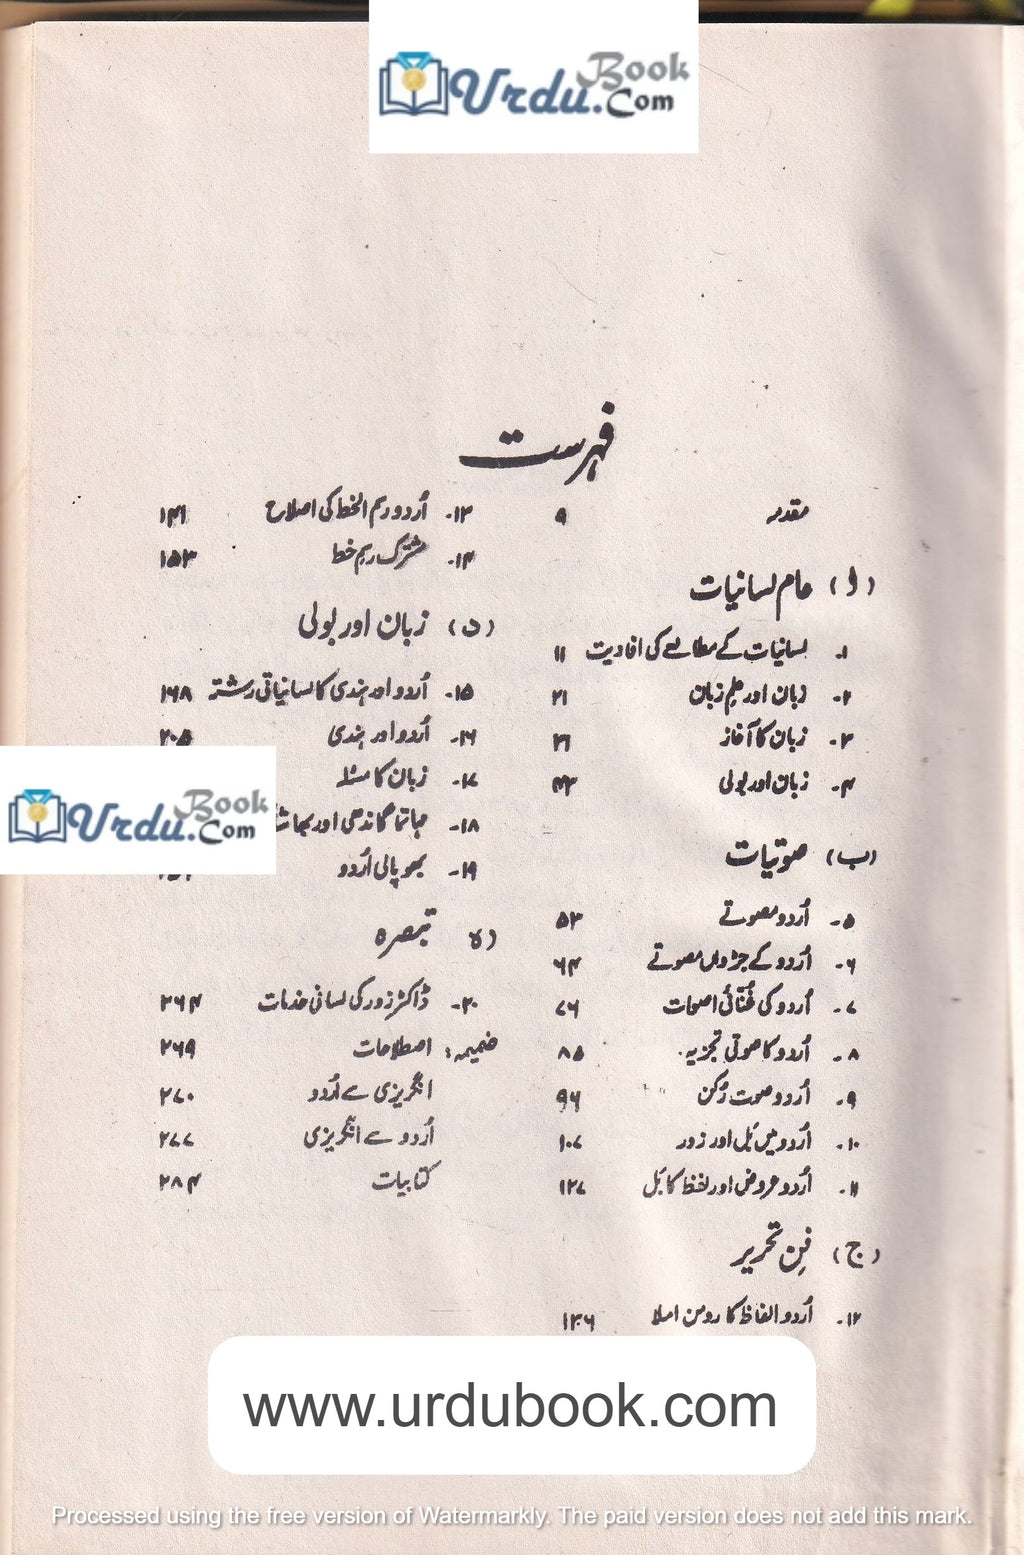 Urdu Book .Com
فہرست
مقدمہ ۹
(ا) عام لسانیات
۱. لسانیات کے مطالعے کی افادیت ۱۱
۲. زبان اور علمِ زبان ۲۱
۳. زبان کا آغاز ۳۱
۴. زبان اور بولی ۴۳
(ب) صوتیات
۵. اُردو مصوتے ۵۳
۶. اُردو کے جڑواں مصوتے ۶۴
۷. اُردو کی غُنّائی اصوات ۷۶
۸. اُردو کا صوتی تجزیہ ۸۵
۹. اُردو صوت رُکن ۹۶
۱۰. اُردو میں بَل اور زور ۱۰۷
۱۱. اُردو عروض اور لفظ کا بَل ۱۲۷
(ج) فنِ تحریر
۱۲. اُردو الفاظ کا رومن املا ۱۳۶
۱۳. اُردو رسم الخط کی اصلاح ۱۴۱
۱۴. مشترک رسم خط ۱۵۳
(د) زبان اور بولی
۱۵. اُردو اور ہندی کا لسانیاتی رشتہ ۱۶۸
۱۶. اُردو اور ہندی ۲۰۵
۱۷. زبان کا مسئلہ
۱۸. مہاتما گاندھی اور
۱۹. بھوپالی اُردو
(ہ تبصرہ
۲۰. ڈاکٹر زور کی لسانی خدمات ۲۶۴
ضمیمہ: اصطلاحات ۲۶۹
انگریزی سے اُردو ۲۷۰
اُردو سے انگریزی ۲۷۷
کتابیات ۲۸۴
Urdu Book .Com
www.urdubook.com
Processed using the free version of Watermarkly. The paid version does not add this mark.